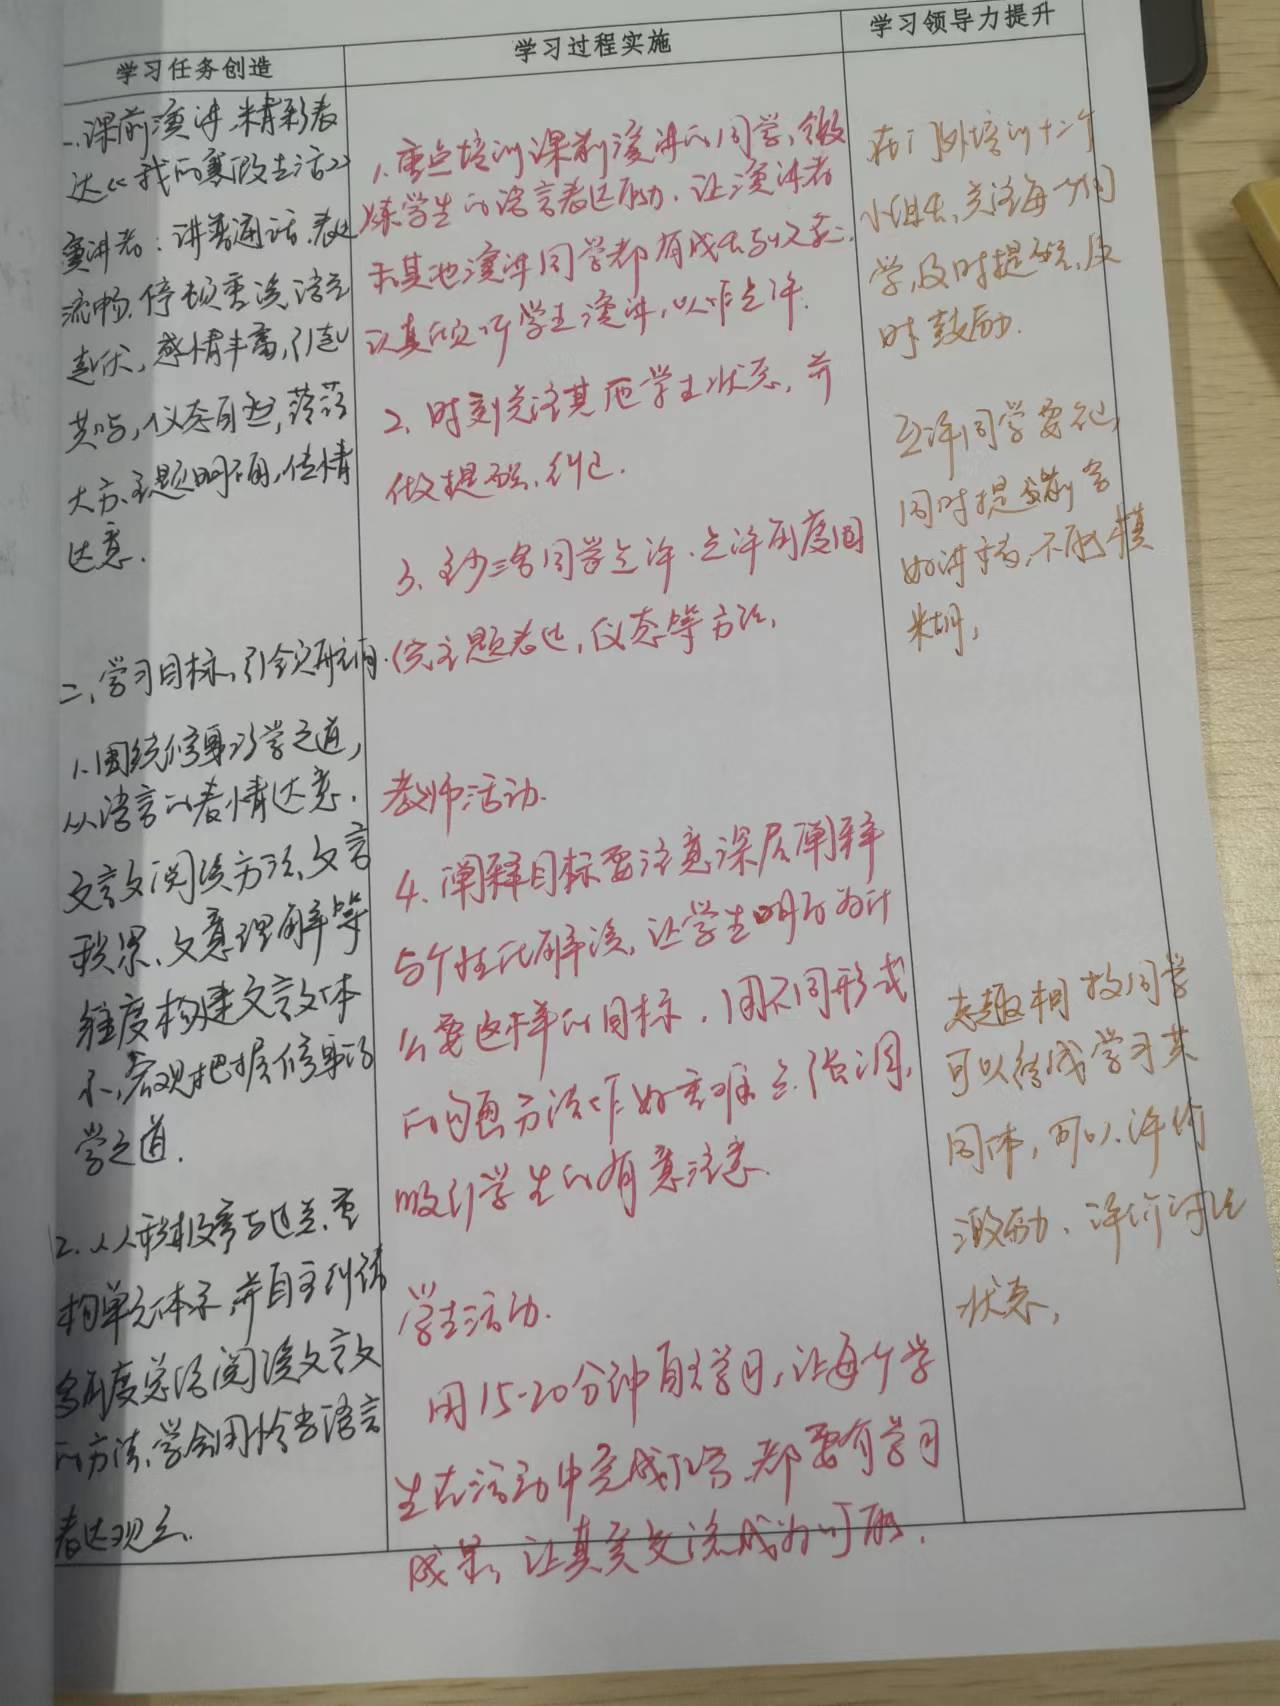 学习任务创造
一、课前演讲、精彩表
达《我的寒假生活》
演讲者：讲普通话、表达
流畅、停顿重读语言
起伏，感情丰富，引起
共鸣，仪态自然，落落
大方、主题明确，传情
达意.
二、学习目标，引领航向.
1、围绕修身治学之道，
从语言的表情达意.
文言文阅读方法、文言
积累、文意理解等
维度构建文言文体
系，客观把握修身治
学之道.
2. 人人积极参与达善，重
构单元体系，并自主
多角度总结阅读文言文
的方法，学会用恰当语言
表达观点.
学习过程实施
1、重点培训课前演讲的同学，锻
炼学生的语言表达能力，让演讲者
和其他演讲同学都有成长与收获.
认真倾听学生演讲，以作点评.
2、时刻关注其他学生状态，并
做提醒、纠正.
3、至少三名同学点评，点评角度围
绕主题表达，仪态等方法，
教师活动.
4、阐释目标要注意深层阐释
与个性化解读，让学生明白为什
么要这样的目标，用不同形式
的勾画方法作好重难点强调，
吸引学生的有意注意.
学生活动.
用15-20分钟自主学习，让每个学
生在活动中完成任务，都要有学习
成果，让真实交流成为可能.
学习领导力提升
在门外培训十二个
小组长，关注每一个同
学，及时提醒，及
时鼓励.
点评同学要记，
同时提前
如讲稿，不能模
糊，
志趣相投同学
可以结成学习共
同体，可以评价
激励、评价讨论
状态，